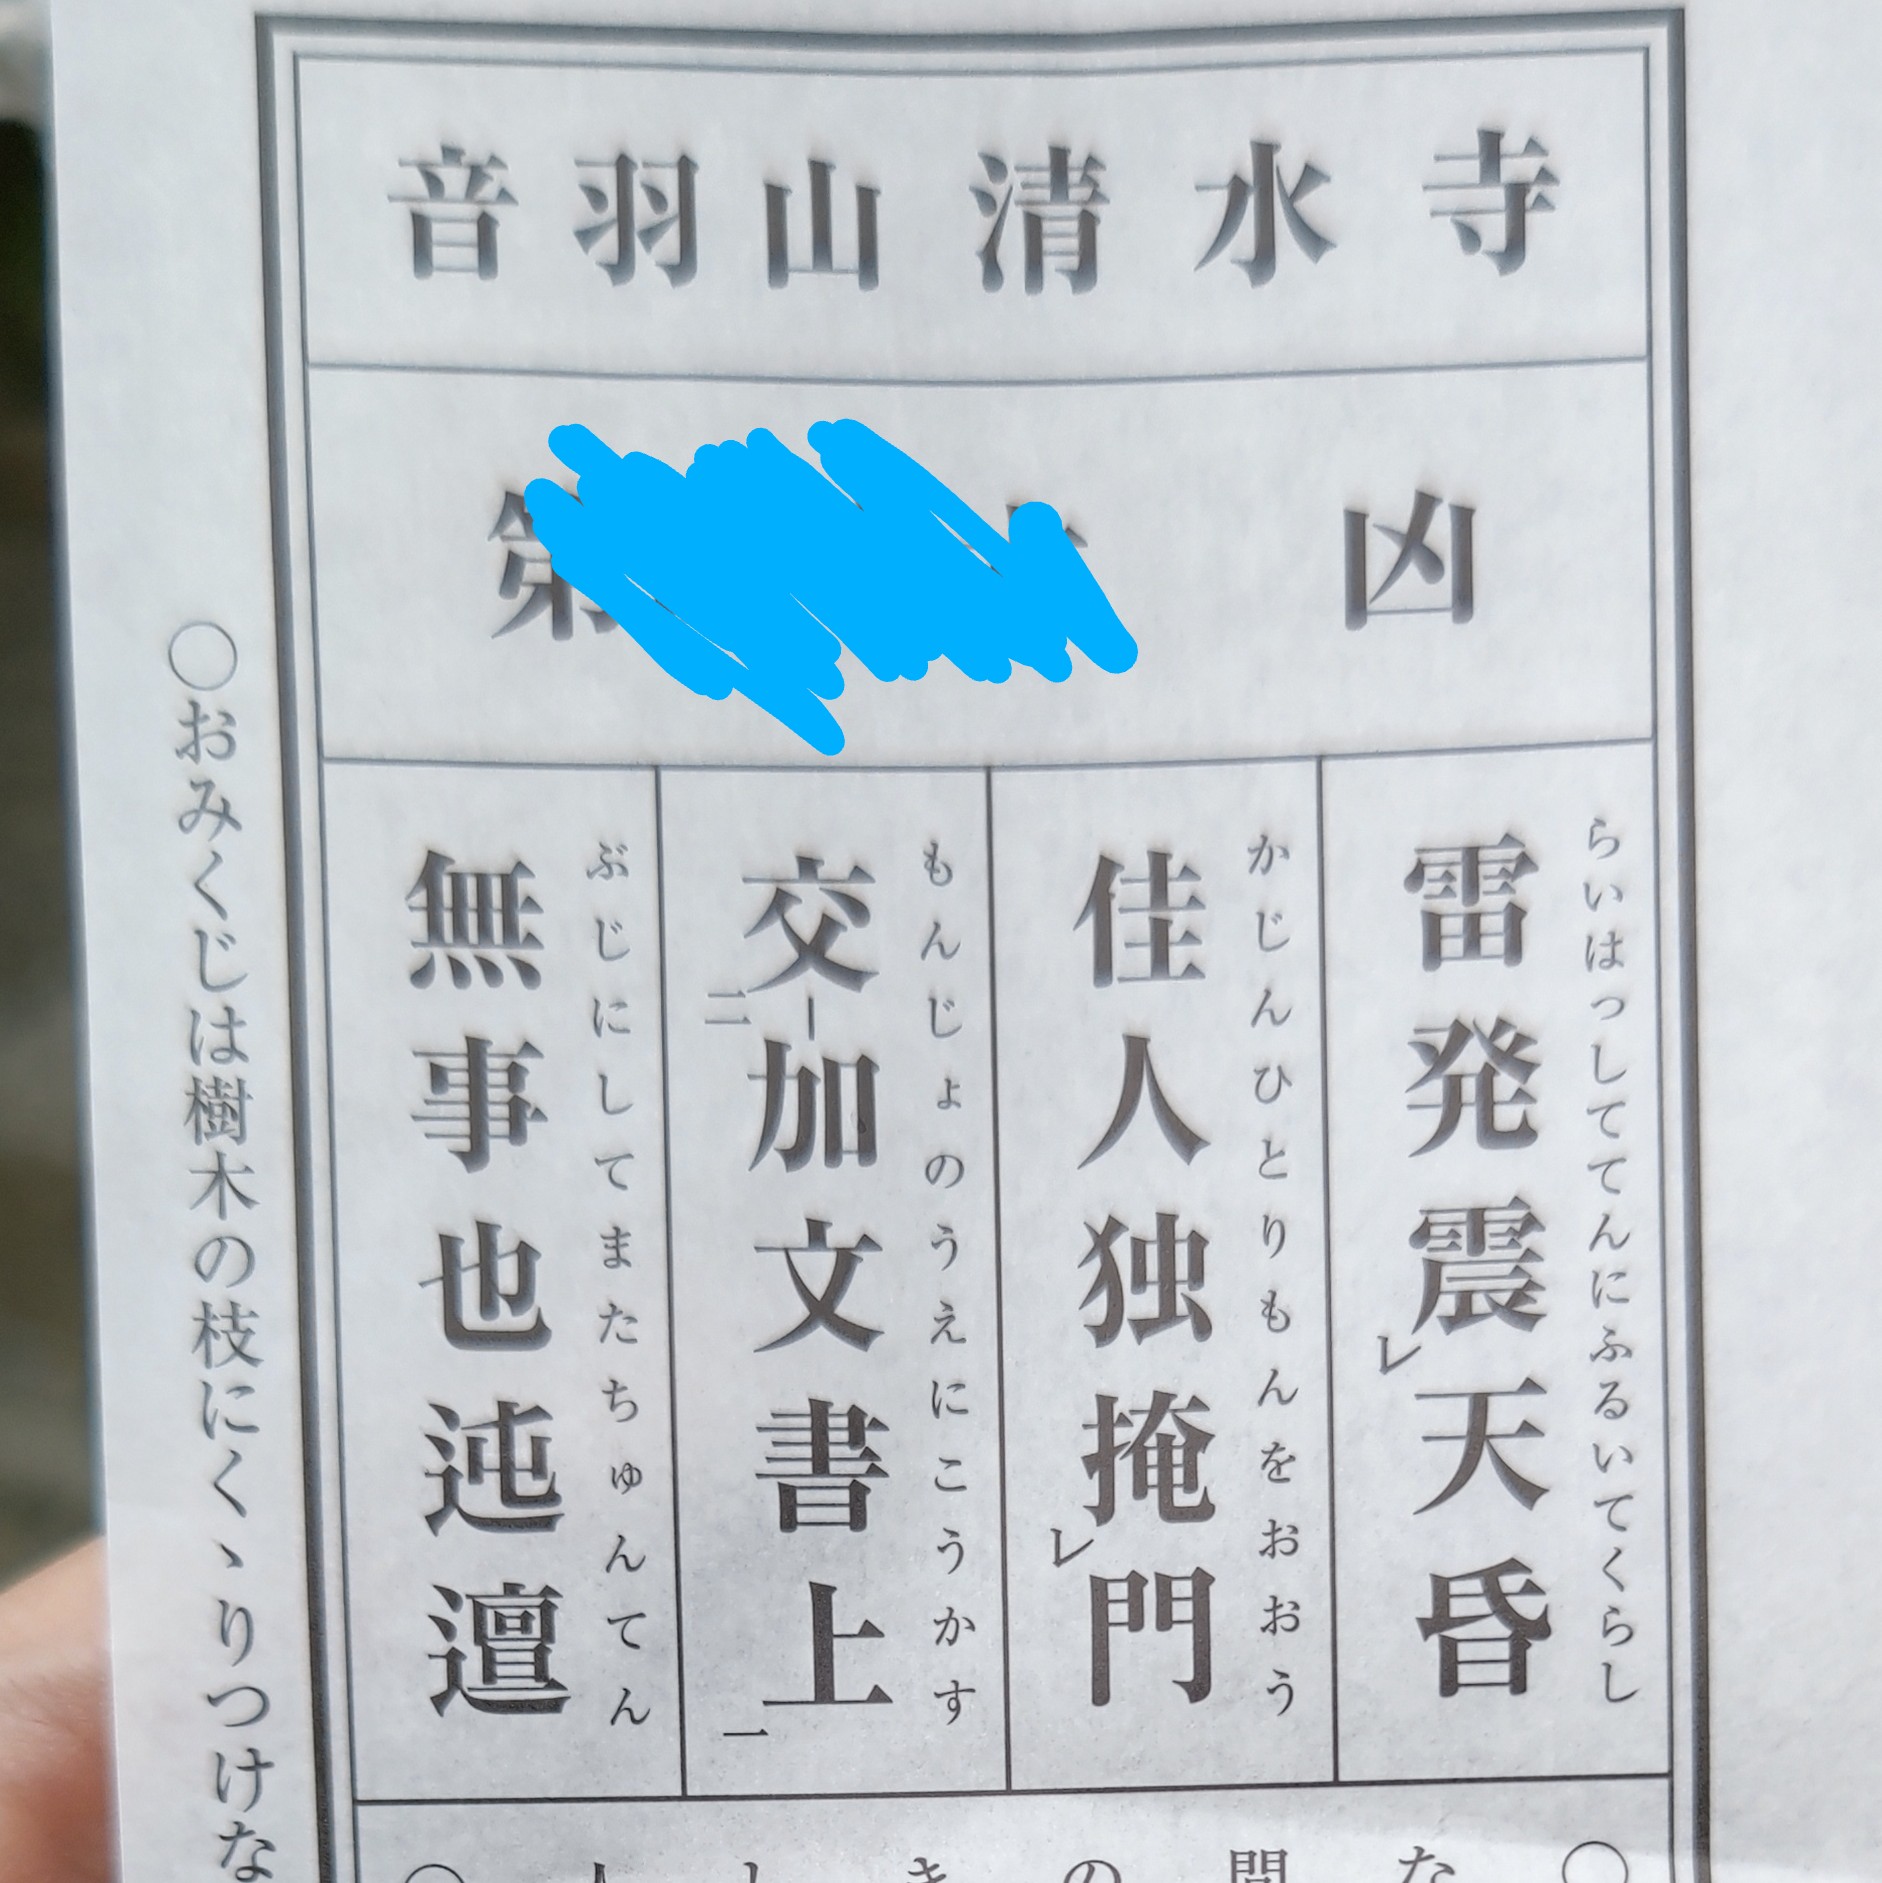 音羽山清水寺
第 凶
らいはっしててんにふるいてくらし
雷発震レ天昏
かじんひとりもんをおおう
佳人独掩レ門
もんじょのうえにこうかす
交二-加文書上一
ぶじにしてまたちゅんてん
無事也迍邅
○おみくじは樹木の枝にくゝりつけな